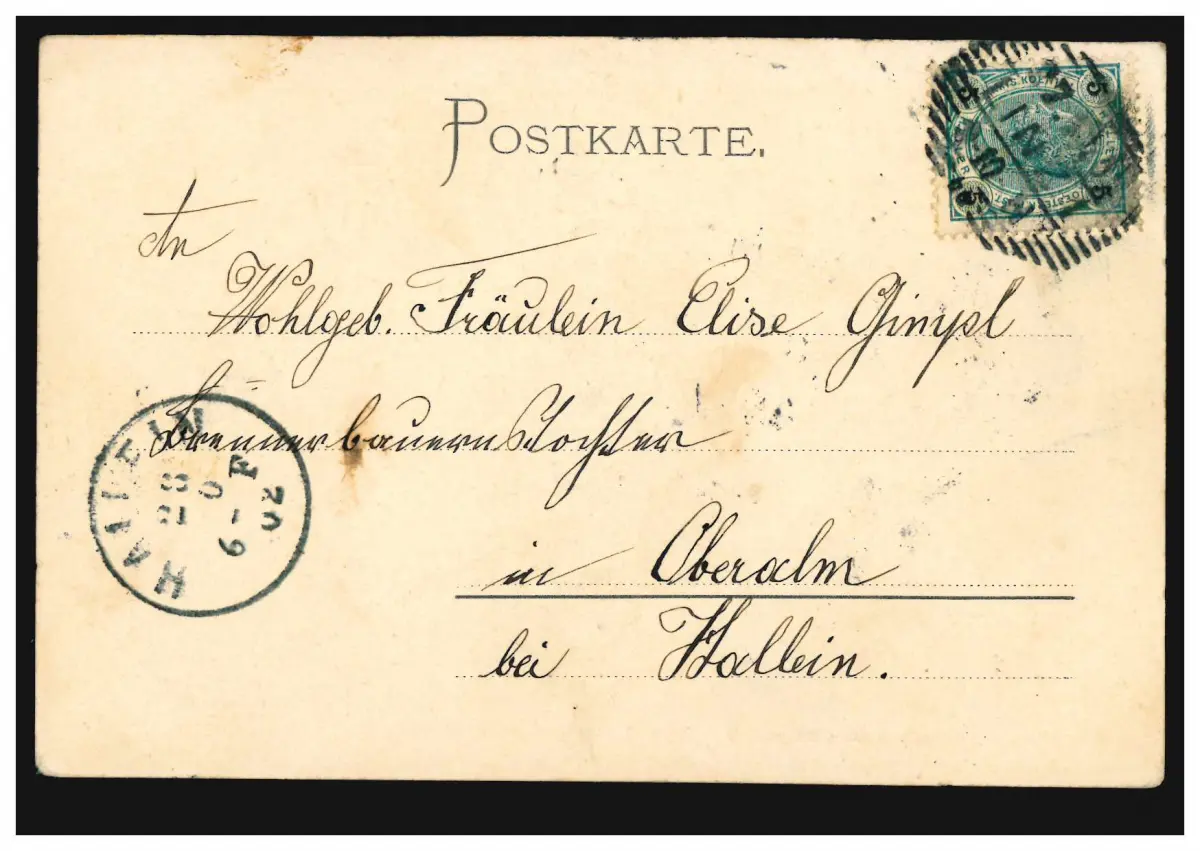 POSTKARTE.
An
Wohlgeb. Fräulein Elise Gimpl
Brennerbauernstochter
in Oberalm
bei Hallein.
HALLEIN
02
5 5
5 5